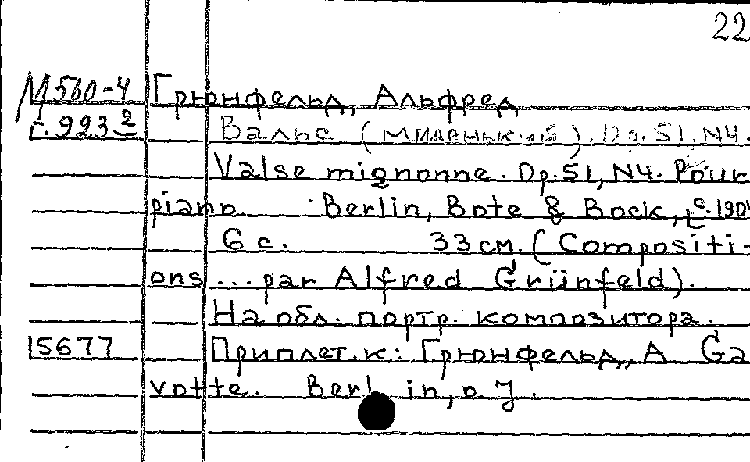 22
М 560-4 Грюнфельд, Альфред
г. 993 2 Вальс (миленький). Op. 51, N4.
Valse mignonne. Op. 51, N4. Pour
piano. Berlin, Bote & Bock, [c. 190
6 с. 33 см. (Compositi-
ons ... par Alfred Grünfeld).
На обл. портр. композитора.
15677 Приплет. к: Грюнфельд, А. Ga
votte. Berlin, o. J.